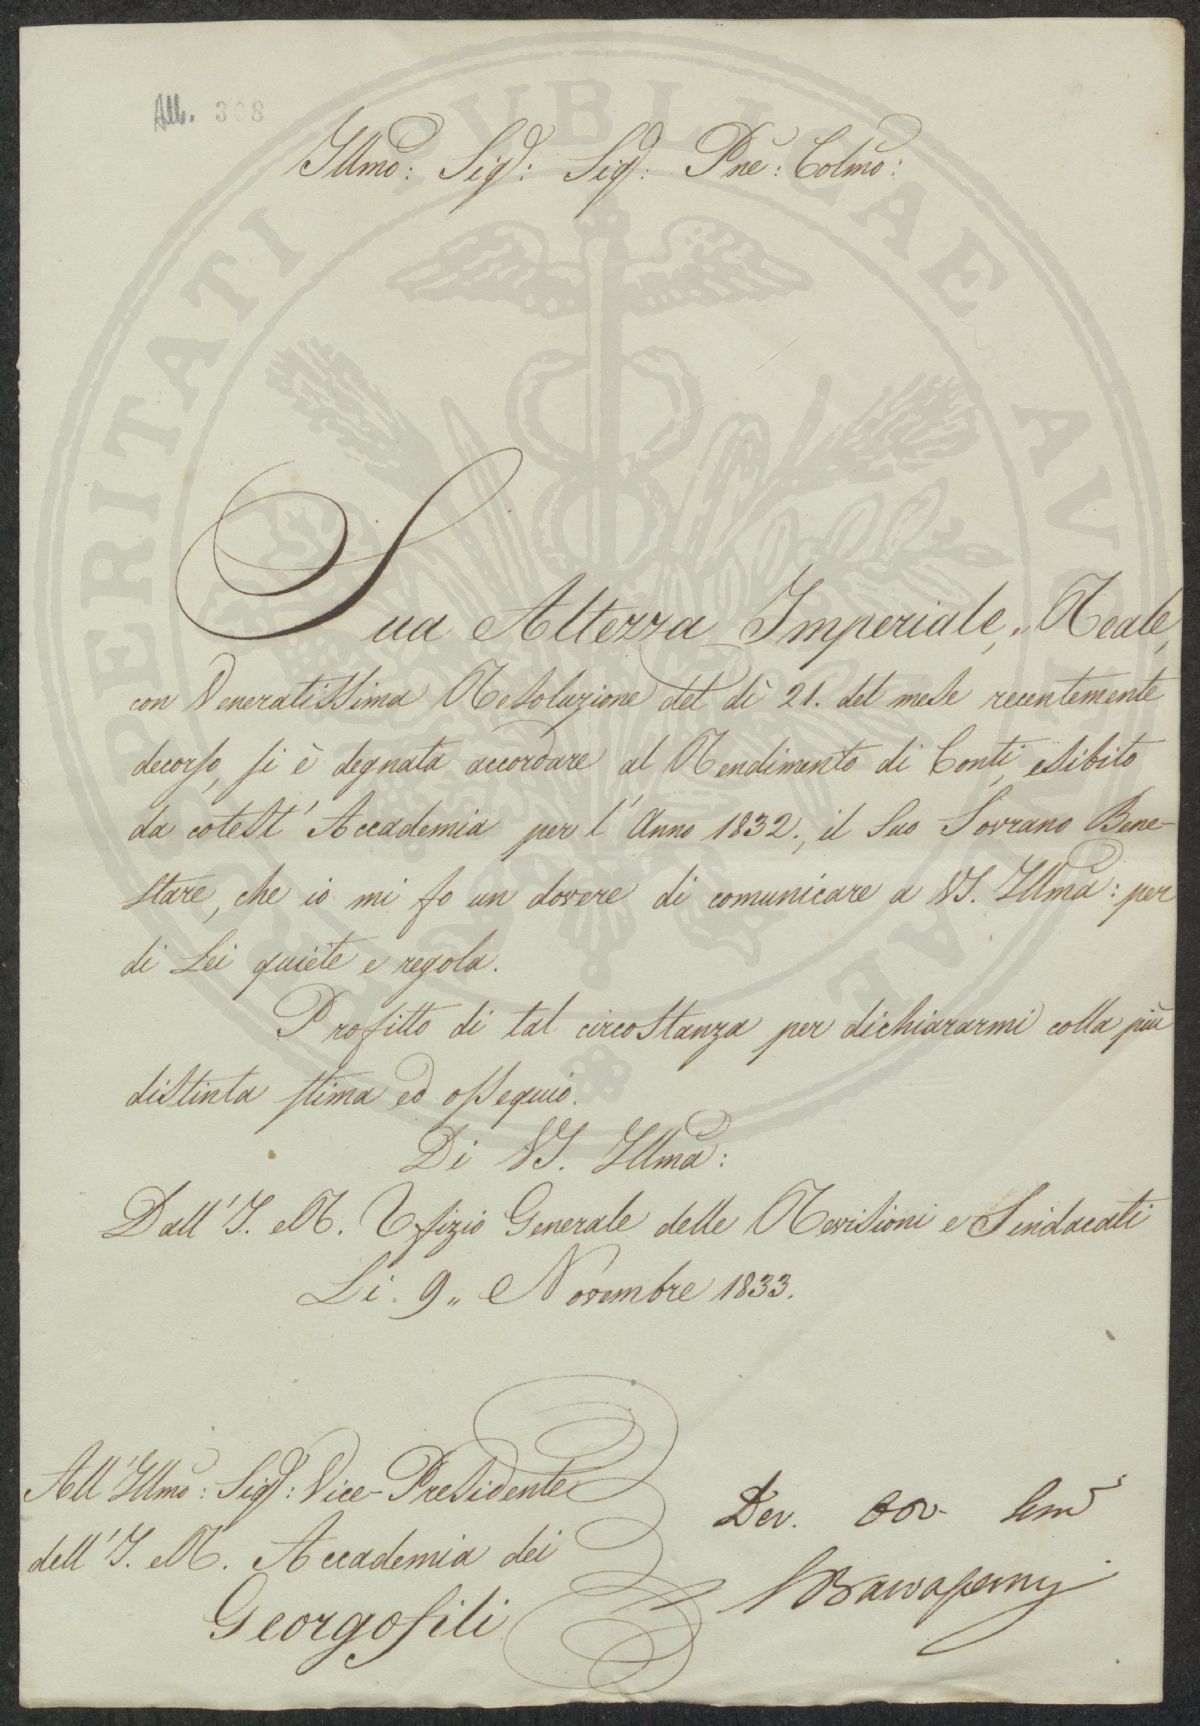 All. 308
Illmo: Sigr: Sigr: Pne: Colmo:
Sua Altezza Imperiale, e Reale,
con Veneratissima Resoluzione del dì 21. del mese recentemente
decorso, si è degnata accordare al Rendimento di Conti, esibito
da cotest' Accademia per l' Anno 1832., il Suo Sovrano Bene-
stare, che io mi fo un dovere di comunicare a VS. Illma: per
di Lei quiete e regola.
Profitto di tal circostanza per dichiararmi colla più
distinta stima ed ossequio.
Di VS. Illma:
Dall' I. e R. Ufizio Generale delle Revisioni e Sindacati
Li. 9„ Novembre 1833.
All' Illmo: Sigr: Vice-Presidente
dell' I. e R. Accademia dei
Georgofili
Dev. Obb
PROSPERITATI PUBLICAE AUGENDAE